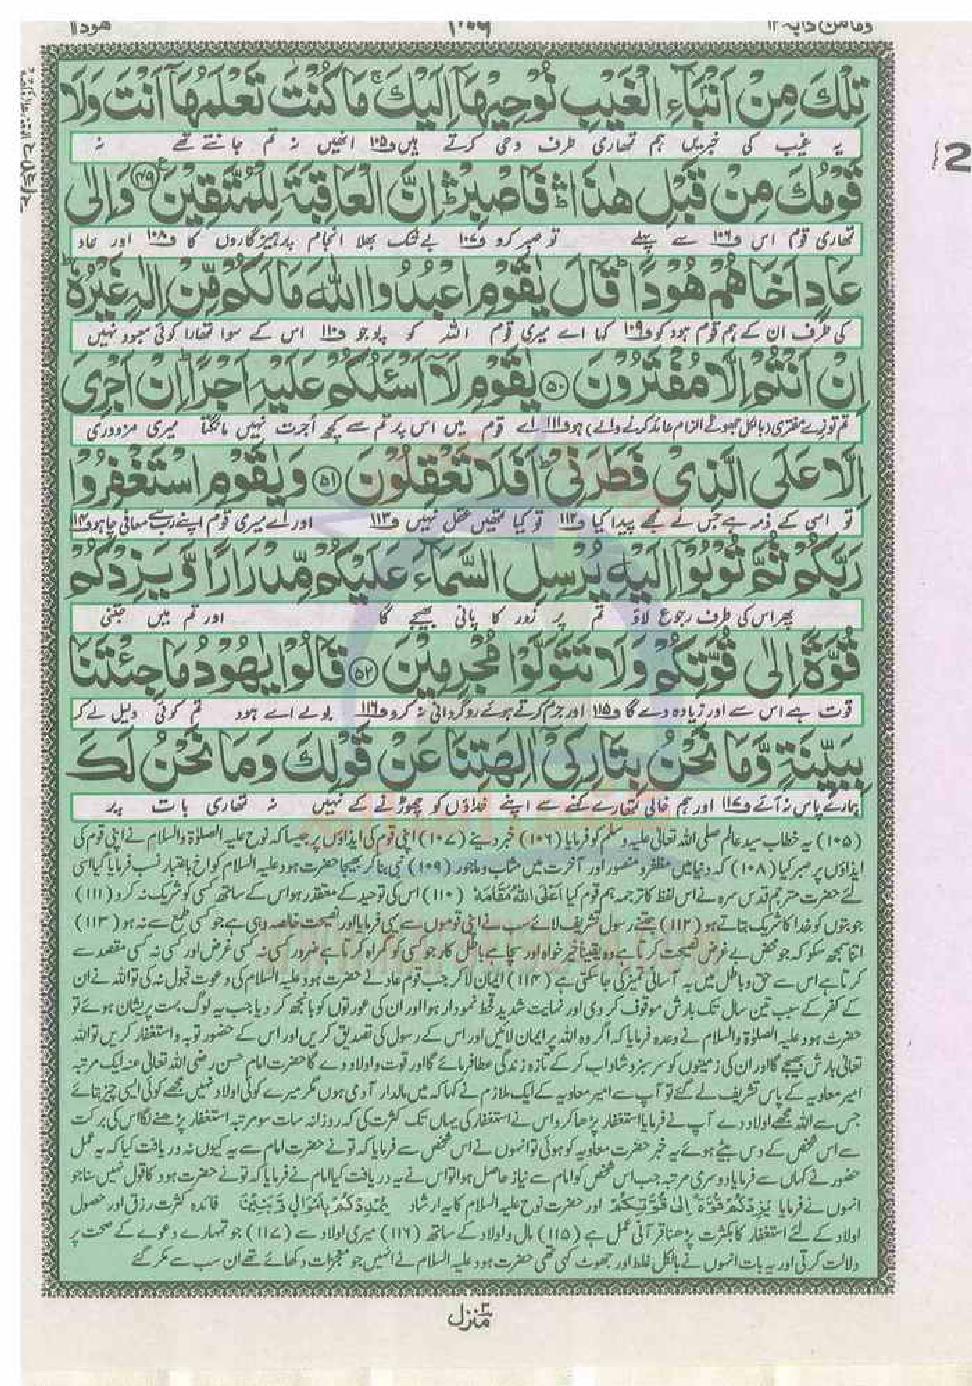 ومامن دابة ١٢
ھود ١١
تِلْكَ مِنْ اَنْۢبَآءِ الْغَیْبِ نُوْحِیْهَاۤ اِلَیْكَ ۚ مَا كُنْتَ تَعْلَمُهَاۤ اَنْتَ وَلَا
یہ غیب کی خبریں ہم تمھاری طرف وحی کرتے ہیں ف۱۰۵ انھیں نہ تم جانتے تھے نہ
قَوْمُكَ مِنْ قَبْلِ هٰذَا ۛؕ فَاصْبِرْ ۛؕ اِنَّ الْعَاقِبَةَ لِلْمُتَّقِیْنَ ۴۹ وَاِلٰى
تمھاری قوم اس ف۱۰۶ سے پہلے تو صبر کرو ف۱۰۷ بے شک بھلا انجام پرہیزگاروں کا ف۱۰۸ اور عاد
عَادٍ اَخَاهُمْ هُوْدًا ؕ قَالَ یٰقَوْمِ اعْبُدُوا اللّٰهَ مَا لَكُمْ مِّنْ اِلٰهٍ غَیْرُهٗ ؕ
کی طرف ان کے ہم قوم ہود کو ف۱۰۹ کہا اے میری قوم اللہ کو پوجو ف۱۱۰ اس کے سوا تمھارا کوئی معبود نہیں
اِنْ اَنْتُمْ اِلَّا مُفْتَرُوْنَ ۵۰ یٰقَوْمِ لَاۤ اَسْـَٔلُكُمْ عَلَیْهِ اَجْرًا ؕ اِنْ اَجْرِیَ
تم تو نرے مفتری (بالکل جھوٹے الزام عائد کرنے والے) ہو ف۱۱۱ اے قوم میں اس پر تم سے کچھ اُجرت نہیں مانگتا میری مزدوری
اِلَّا عَلَى الَّذِیْ فَطَرَنِیْ ؕ اَفَلَا تَعْقِلُوْنَ ۵۱ وَیٰقَوْمِ اسْتَغْفِرُوْا
تو اسی کے ذمہ ہے جس نے مجھے پیدا کیا ف۱۱۲ تو کیا تمھیں عقل نہیں ف۱۱۳ اور اے میری قوم اپنے رب سے معافی چاہو ف۱۱۴
رَبَّكُمْ ثُمَّ تُوْبُوْۤا اِلَیْهِ یُرْسِلِ السَّمَآءَ عَلَیْكُمْ مِّدْرَارًا وَّیَزِدْكُمْ
پھر اس کی طرف رجوع لاؤ تم پر زور کا پانی بھیجے گا اور تم میں جتنی
قُوَّةً اِلٰى قُوَّتِكُمْ وَلَا تَتَوَلَّوْا مُجْرِمِیْنَ ۵۲ قَالُوْا یٰهُوْدُ مَا جِئْتَنَا
قوت ہے اس سے اور زیادہ دے گا ف۱۱۵ اور جرم کرتے ہوئے روگردانی نہ کرو ف۱۱۶ بولے اے ہود تم کوئی دلیل لے کر
بِبَیِّنَةٍ وَّمَا نَحْنُ بِتَارِكِیْۤ اٰلِهَتِنَا عَنْ قَوْلِكَ وَمَا نَحْنُ لَكَ
ہمارے پاس نہ آئے ف۱۱۷ اور ہم خالی تمھارے کہنے سے اپنے خداؤں کو چھوڑنے کے نہیں نہ تمھاری بات پر
(۱۰۵) یہ خطاب سید عالم صلی اللہ تعالٰی علیہ وسلم کو فرمایا (۱۰۶) خبر دینے (۱۰۷) اپنی قوم کی ایذاؤں پر جیسا کہ نوح علیہ الصلوٰۃ والسلام نے اپنی قوم کی
ایذاؤں پر صبر کیا (۱۰۸) کہ دنیا میں مظفر و منصور اور آخرت میں مثاب و ماجور (۱۰۹) نبی بنا کر بھیجا حضرت ہود علیہ السلام کو اخ باعتبار نسب فرمایا گیا اسی
لئے حضرت مترجم قدس سرہ نے اس لفظ کا ترجمہ ہم قوم کیا اَعْلَی اللّٰهُ مَقَامَهٗ (۱۱۰) اس کی توحید کے معتقد رہو اس کے ساتھ کسی کو شریک نہ کرو (۱۱۱)
جو بتوں کو خدا کا شریک بتاتے ہو (۱۱۲) جتنے رسول تشریف لائے سب نے اپنی قوموں سے یہی فرمایا اور نصیحت خالصہ وہی ہے جو کسی طمع سے نہ ہو (۱۱۳)
اتنا سمجھ سکو کہ جو محض بے غرض نصیحت کرتا ہے وہ یقیناً خیر خواہ اور سچا ہے باطل کار جو کسی کو گمراہ کرتا ہے ضرور کسی نہ کسی غرض اور کسی نہ کسی مقصد سے
کرتا ہے اس سے حق و باطل میں بہ آسانی تمیز کی جا سکتی ہے (۱۱۴) ایمان لا کر جب قوم عاد نے حضرت ہود علیہ السلام کی دعوت قبول نہ کی تو اللہ نے ان
کے کفر کے سبب تین سال تک بارش موقوف کر دی اور نہایت شدید قحط نمودار ہوا اور ان کی عورتوں کو بانجھ کر دیا جب یہ لوگ بہت پریشان ہوئے تو
حضرت ہود علیہ الصلوٰۃ والسلام نے وعدہ فرمایا کہ اگر وہ اللہ پر ایمان لائیں اور اس کے رسول کی تصدیق کریں اور اس کے حضور توبہ و استغفار کریں تو اللہ
تعالٰی بارش بھیجے گا اور ان کی زمینوں کو سرسبز و شاداب کر کے تازہ زندگی عطا فرمائے گا اور قوت و اولاد دے گا حضرت امام حسن رضی اللہ تعالٰی عنہ ایک مرتبہ
امیر معاویہ کے پاس تشریف لے گئے تو آپ سے امیر معاویہ کے ایک ملازم نے کہا کہ میں مالدار آدمی ہوں مگر میرے کوئی اولاد نہیں مجھے کوئی ایسی چیز بتائیے
جس سے اللہ مجھے اولاد دے آپ نے فرمایا استغفار پڑھا کرو اس نے استغفار کی یہاں تک کثرت کی کہ روزانہ سات سو مرتبہ استغفار پڑھنے لگا اس کی برکت
سے اس شخص کے دس بیٹے ہوئے یہ خبر حضرت معاویہ کو ہوئی تو انہوں نے اس شخص سے فرمایا کہ تو نے حضرت امام سے یہ کیوں نہ دریافت کیا کہ یہ عمل
حضور نے کہاں سے فرمایا دوسری مرتبہ جب اس شخص کو امام سے نیاز حاصل ہوا تو اس نے یہ دریافت کیا امام نے فرمایا کہ تو نے حضرت ہود کا قول نہیں سنا جو
انہوں نے فرمایا یَزِدْكُمْ قُوَّةً اِلٰى قُوَّتِكُمْ اور حضرت نوح علیہ السلام کا یہ ارشاد یُمْدِدْكُمْ بِاَمْوَالٍ وَّبَنِیْنَ فائدہ کثرت رزق اور حصول
اولاد کے لئے استغفار کا بکثرت پڑھنا قرآنی عمل ہے (۱۱۵) مال و اولاد کے ساتھ (۱۱۶) میری اولاد سے (۱۱۷) جو تمہارے دعوے کے صحت پر
دلالت کرتی اور یہ بات انہوں نے بالکل غلط اور جھوٹ کہی تھی حضرت ہود علیہ السلام نے انہیں جو معجزات دکھائے تھے ان سب سے مکر گئے
منزل ۳